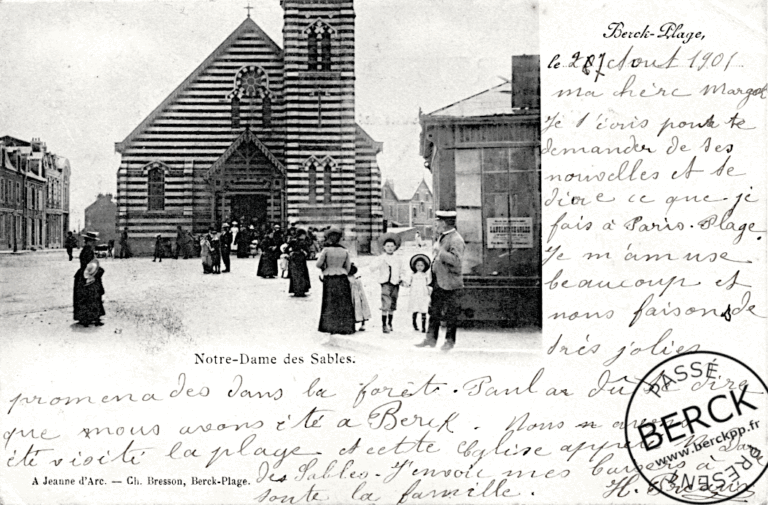 Berck-Plage,
le 27 Aout 1901.
Ma chére Margot
Je t'écris pour te
demander de tes
nouvelles et te
dire ce que je
fais à Paris-Plage.
Je m'amuse
beaucoup et
nous faisons de
trés jolies
Notre-Dame des Sables.
promenades dans la forêt. Paul a dû te dire
que nous avons été a Berck. Nous avons
été visité la plage et cette Eglise appelé
des Sables. J'envoie mes baisers à
toute la famille.
A Jeanne d'Arc. — Ch. Bresson, Berck-Plage.
PASSÉ
BERCK
www.berckpp.fr
PRÉSENT